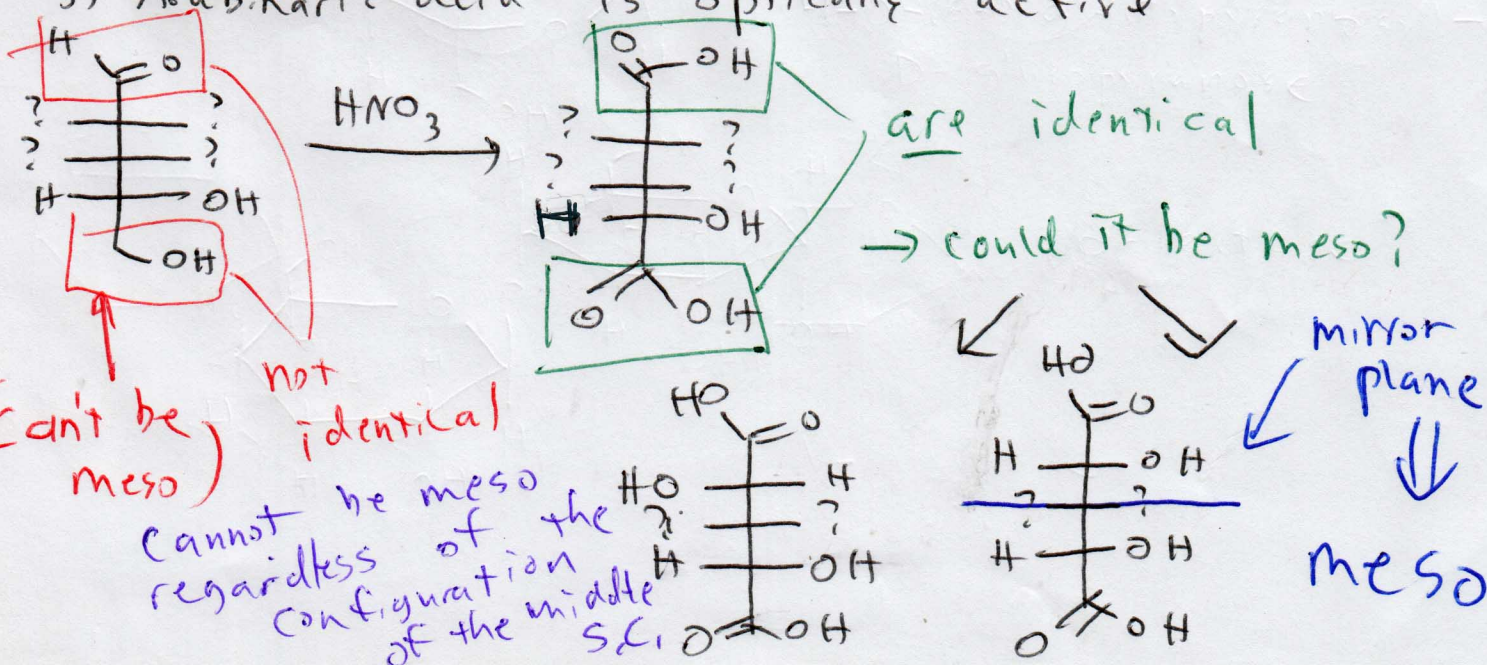 is optically active
H
O
? ?
? ?
H OH
OH
HNO3
O OH
? ?
? ?
H OH
O OH
are identical
→ could it be meso?
not
identical
can't be
meso)
cannot be meso
regardless of the
configuration
of the middle
S.C.
HO O
HO H
? ?
H OH
O OH
HO
O
H OH
? ?
H OH
O OH
mirror
plane
meso